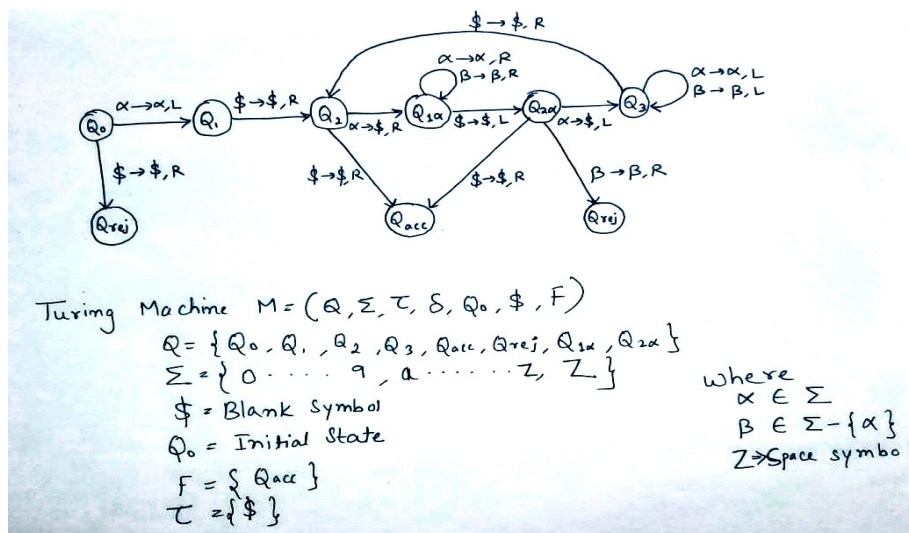 $ → $, R
α → α, R
β → β, R
α → α, L
β → β, L
α → α, L
$ → $, R
α → $, R
$ → $, L
α → $, L
Q₀
Q₁
Q₂
Q₁α
Q₂α
Q₃
$ → $, R
$ → $, R
$ → $, R
β → β, R
Qrej
Qacc
Qrej
Turing Machine M = (Q, Σ, τ, δ, Q₀, $, F)
Q = { Q₀, Q₁, Q₂, Q₃, Qacc, Qrej, Q₁α, Q₂α }
Σ = { 0 . . . . 9, a . . . . . . . z, Z }
$ = Blank Symbol
Q₀ = Initial State
F = { Qacc }
τ = { $ }
where
α ∈ Σ
β ∈ Σ - {α}
Z ⇒ Space symbo